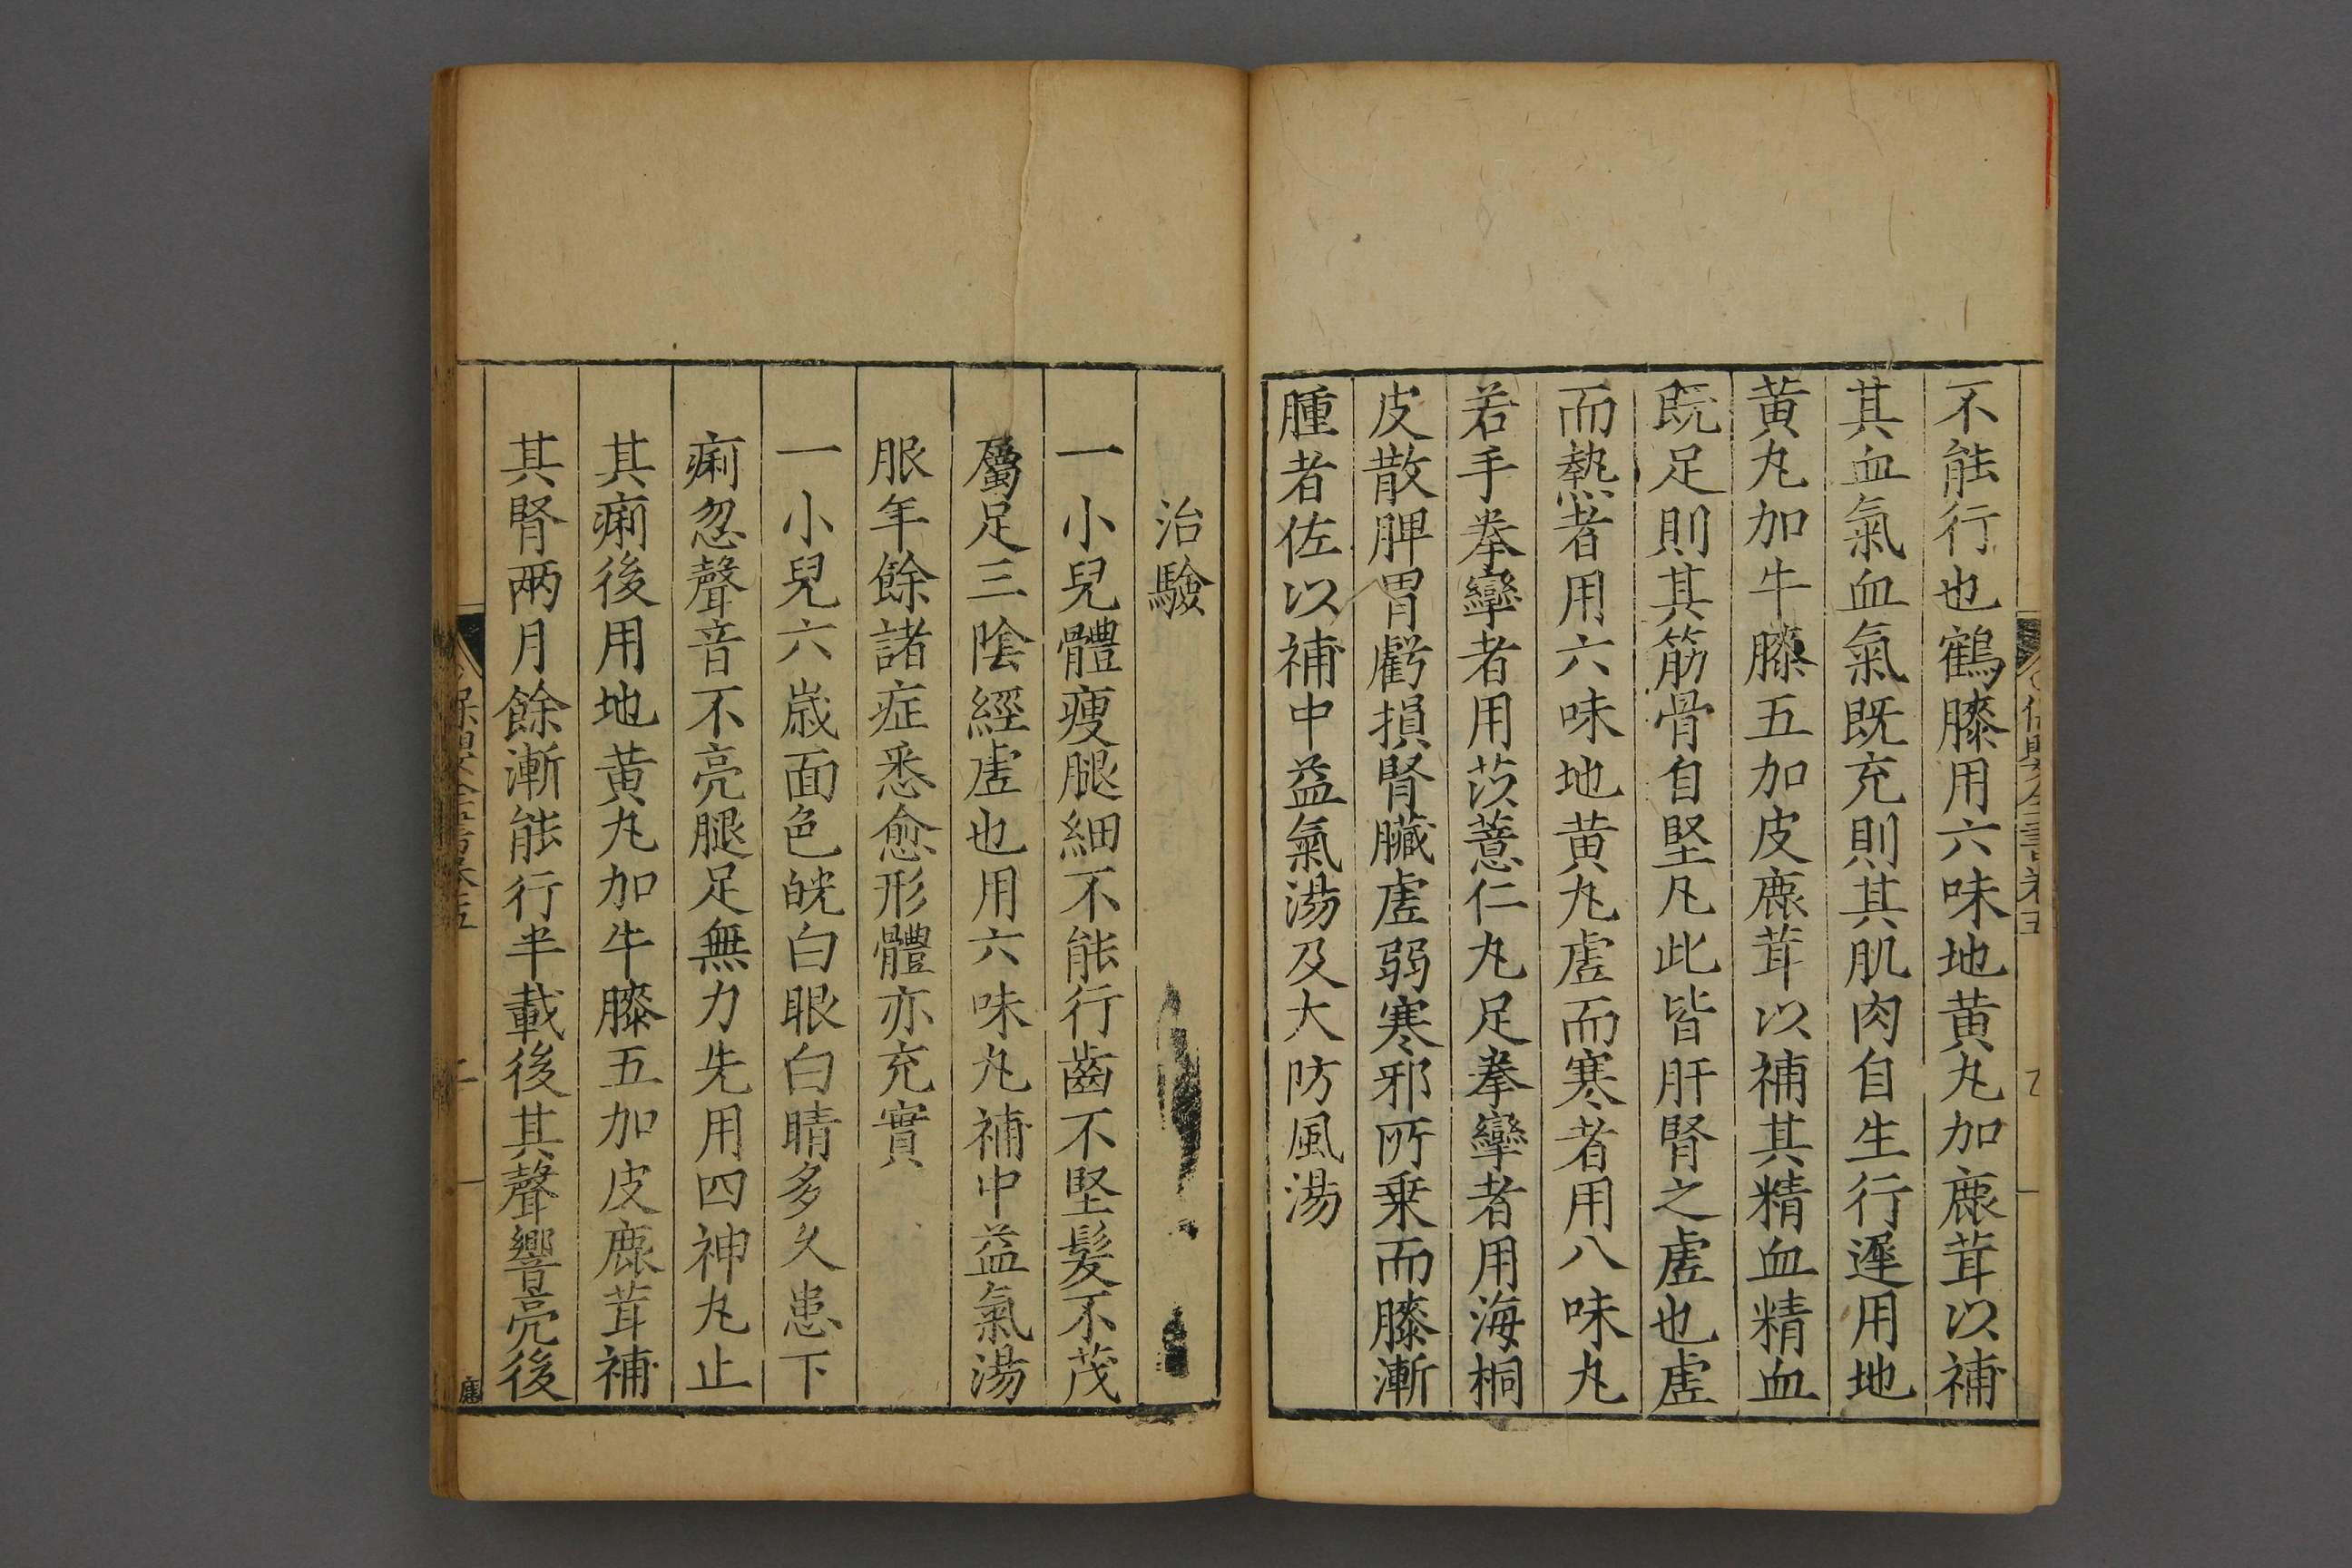 不能行也鶴膝用六味地黄丸加鹿茸以補
其血氣血氣既充則其肌肉自生行遲用地
黄丸加牛膝五加皮鹿茸以補其精血精血
既足則其筋骨自堅凡此皆肝腎之虗也虗
而熱者用六味地黄丸虗而寒者用八味丸
若手拳攣者用薏苡仁丸足拳攣者用海桐
皮散脾胃虧損腎臟虗弱寒邪所乗而膝漸
腫者佐以補中益氣湯及大防風湯
治驗
一小兒體瘦腿細不能行齒不堅髮不茂
屬足三陰經虗也用六味丸補中益氣湯
服年餘諸症悉愈形體亦充實
一小兒六歲面色㿠白眼白睛多久患下
痢忽聲音不亮腿足無力先用四神丸止
其痢後用地黄丸加牛膝五加皮鹿茸補
其腎兩月餘漸能行半載後其聲響亮後
保嬰全書卷五